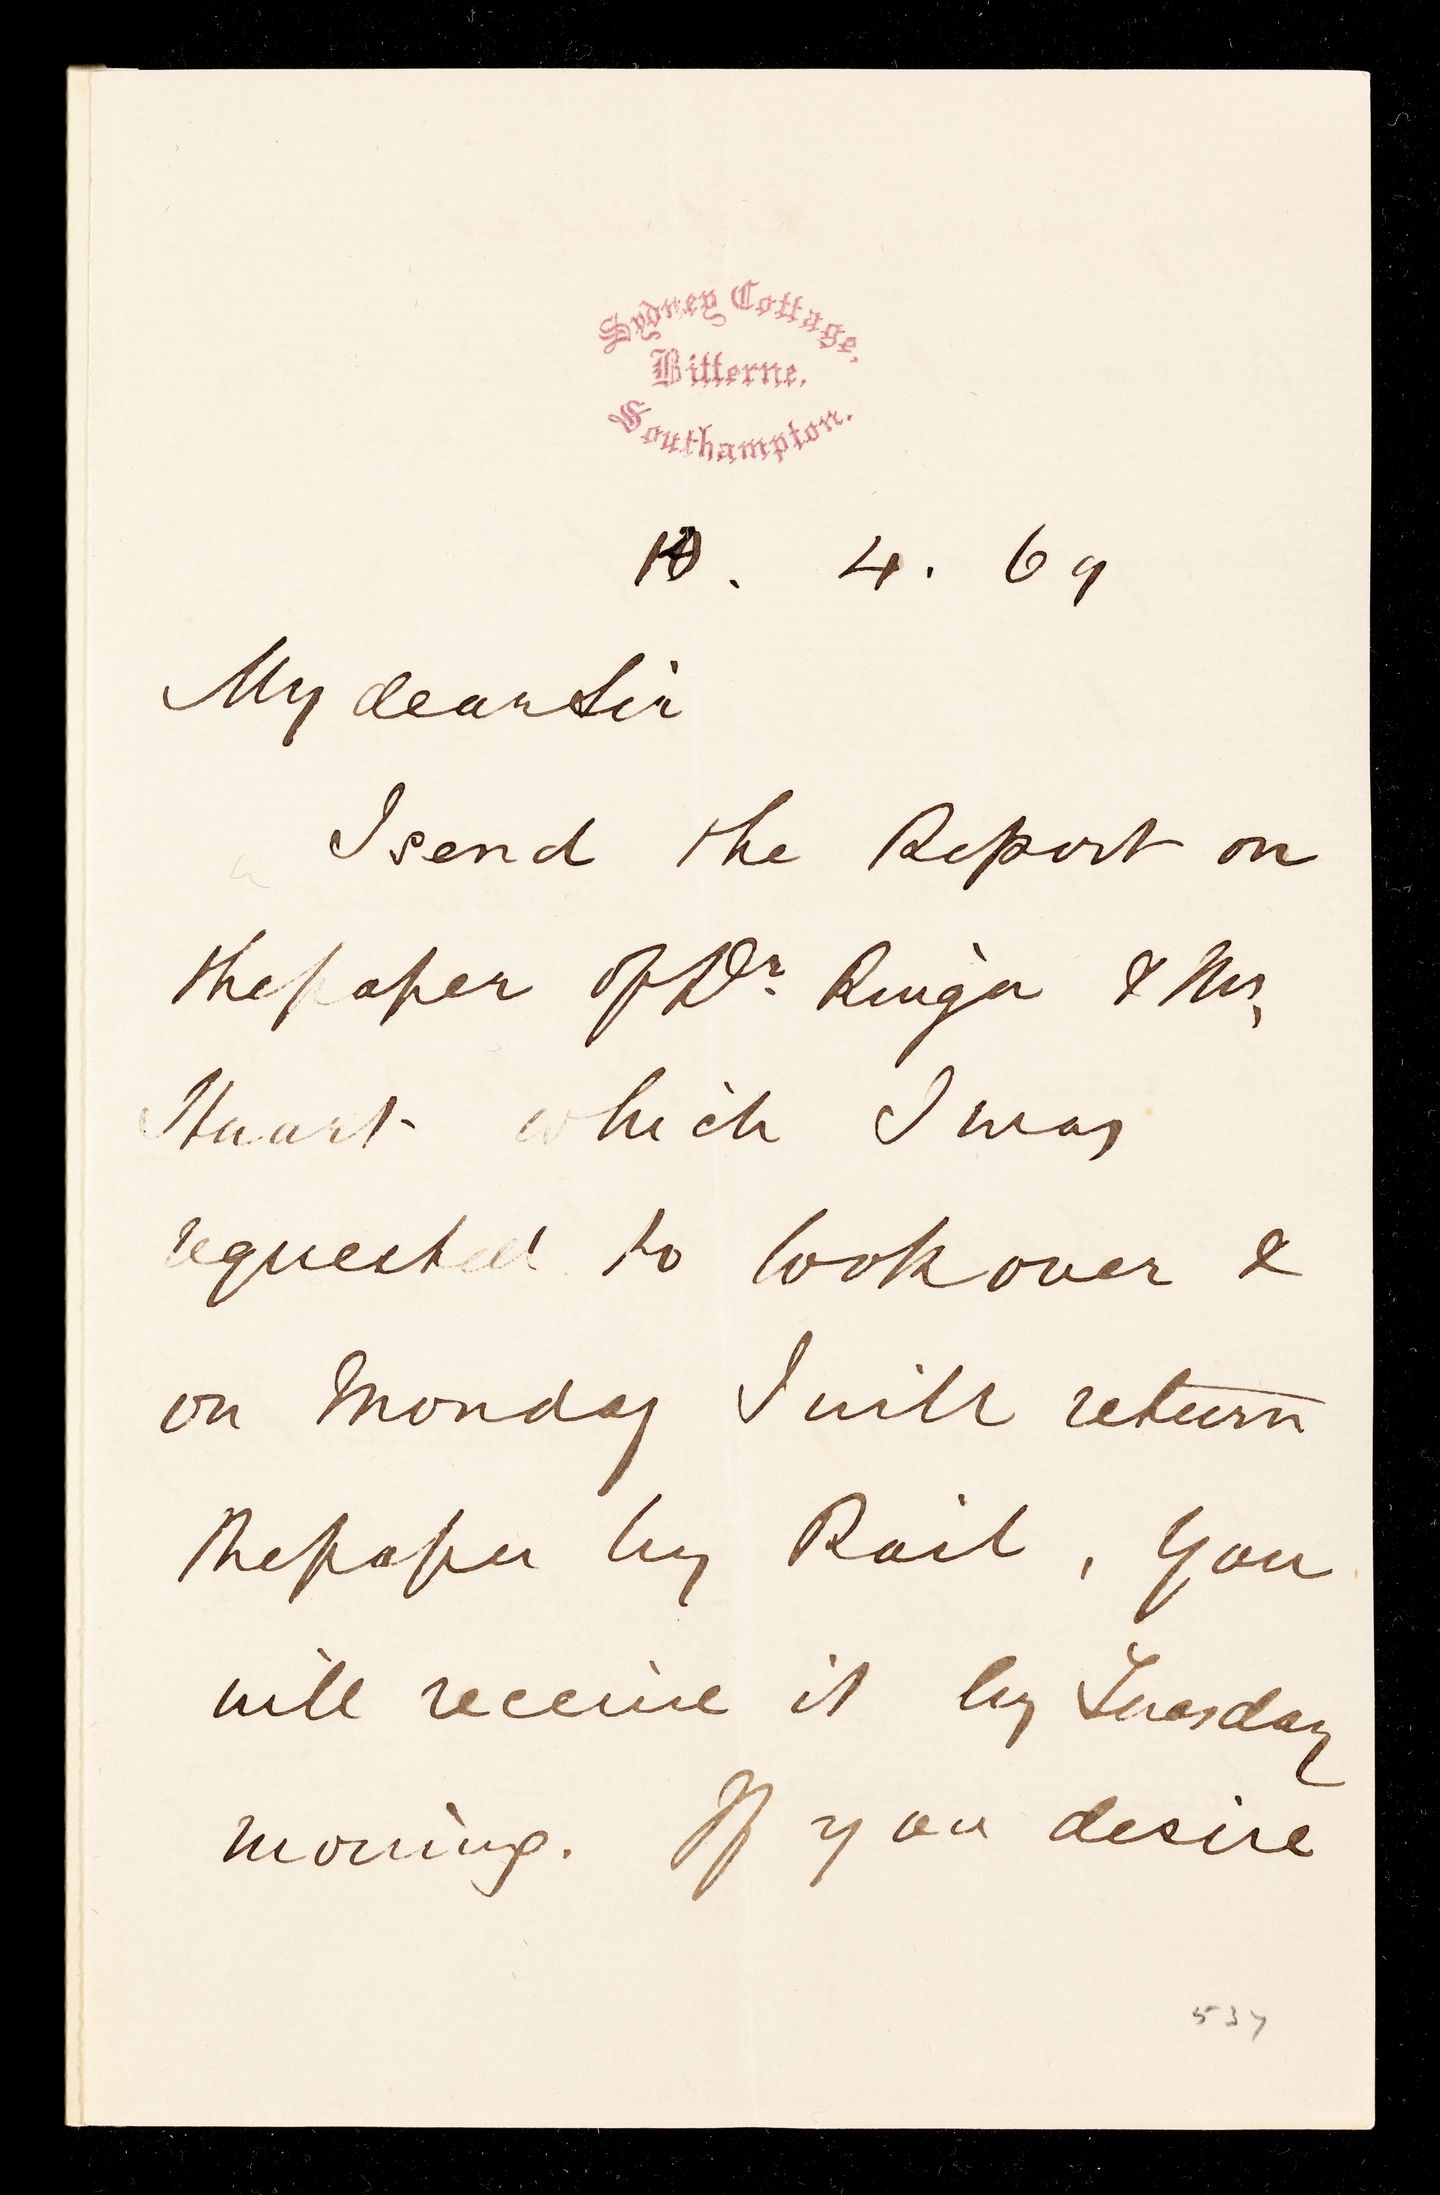 Sydney Cottage,
Bitterne,
Southampton.
10. 4. 69
My dear Sir
I send the Report on
the paper of Dr. Ringer & Mr,
Stuart which I was
requested to look over &
on Monday I will return
the paper by Rail, you
will receive it by Tuesday
morning. If you desire
537